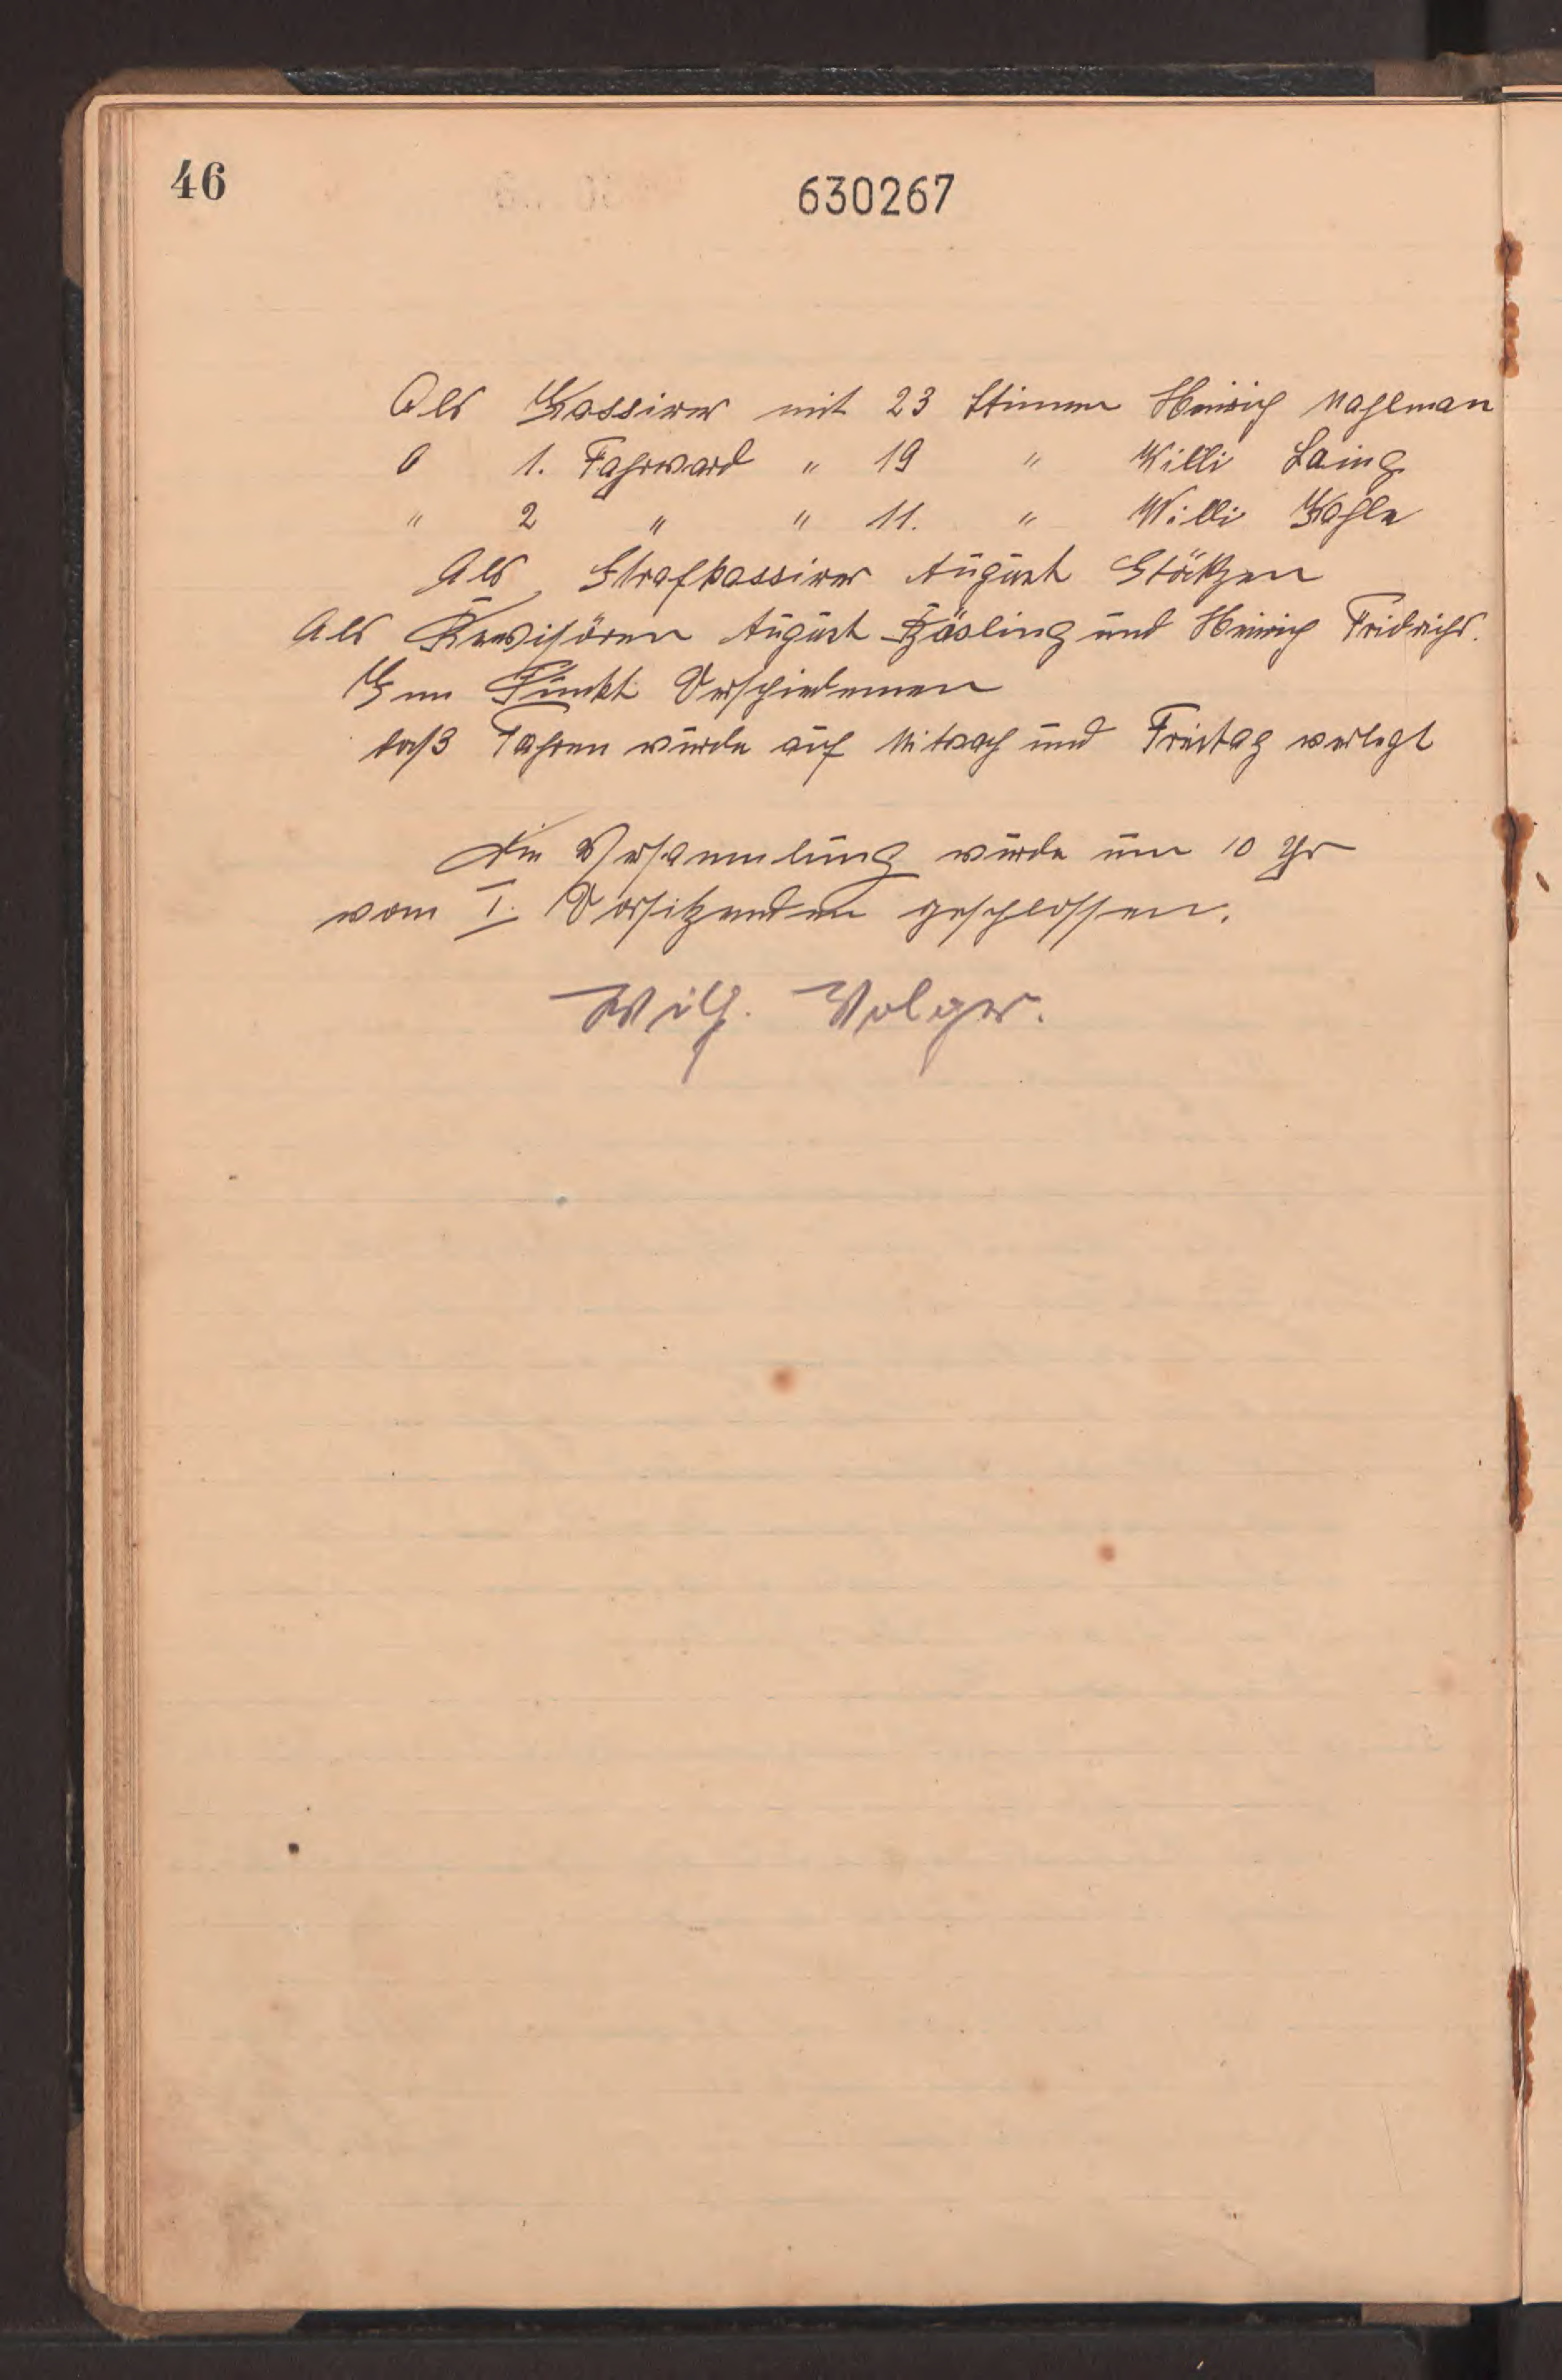 46
630267
Als Kassirer mit 23 Stimmen Heinrich Mahlman
" 1. Fahrward " 19 " Willi Laing
" 2 " " 11. " Willi Kahle
Als Strafkassirer August Stöktzen
Als Revisören August Häsling und Heinrich Fridrichs.
Zum Punkt Verschiedenen
daß Fahren wurde auf Mitwoch und Freitag verlegt
Die Versammlung wurde um 10 Uhr
vom I. Vorsitzenden geschlossen.
Wilh. Volger.